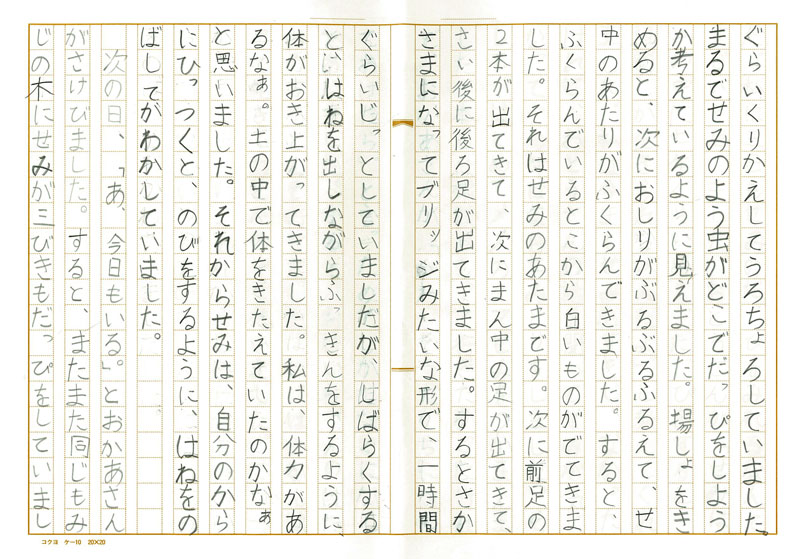 ぐらいくりかえしてうろちょろしていました。
まるでせみのよう虫がどこでだっぴをしよう
か考えているように見えました。場しょをき
めると、次におしりがぶるぶるふるえて、せ
中のあたりがふくらんできました。すると、
ふくらんでいるとこから白いものがでてきま
した。それはせみのあたまです。次に前足の
2本が出てきて、次にまん中の足が出てきて、
さい後に後ろ足が出てきました。するとさか
さまになってブリッジみたいな形で、一時間
ぐらいじっとしていましだがしばらくする
と、はねを出しながらふっきんをするように、
体がおき上がってきました。私は、体力があ
るなぁ。土の中で体をきたえていたのかなぁ
と思いました。それからせみは、自分のから
にひっつくと、のびをするように、はねをの
ばしてがわかしていました。
次の日、「あ、今日もいる。」とおかあさん
がさけびました。すると、またまた同じもみ
じの木にせみが三びきもだっぴをしていまし
コクヨ ケー10 20×20